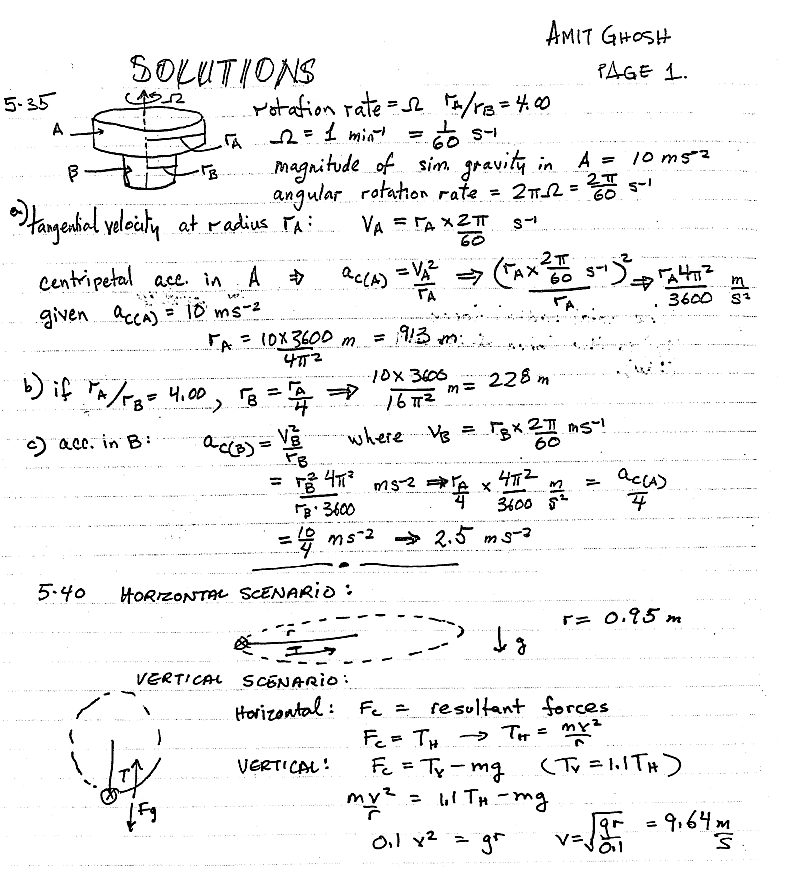 AMIT GHOSH
SOLUTIONS PAGE 1.
5-35 Ω rotation rate = Ω rA/rB = 4.00
A rA Ω = 1 min⁻¹ = 1/60 s⁻¹
B rB magnitude of sim. gravity in A = 10 ms⁻²
angular rotation rate = 2πΩ = 2π/60 s⁻¹
a) tangential velocity at radius rA: VA = rA × 2π/60 s⁻¹
centripetal acc. in A ⇒ ac(A) = VA²/rA ⇒ (rA × 2π/60 s⁻¹)²/rA ⇒ rA4π²/3600 m/s²
given ac(A) = 10 ms⁻²
rA = 10×3600/4π² m = 913 m
b) if rA/rB = 4.00, rB = rA/4 ⇒ 10×3600/16π² m = 228 m
c) acc. in B: ac(B) = VB²/rB where VB = rB × 2π/60 ms⁻¹
= rB² 4π²/rB·3600 ms⁻² ⇒ rA/4 × 4π²/3600 m/s² = ac(A)/4
= 10/4 ms⁻² ⇒ 2.5 ms⁻²
5-40 HORIZONTAL SCENARIO:
r T g r = 0.95 m
VERTICAL SCENARIO:
Horizontal: Fc = resultant forces
Fc = TH → TH = mv²/r
T VERTICAL: Fc = Tv − mg (Tv = 1.1TH)
Fg mv²/r = 1.1TH − mg
0.1 v² = gr v = √(gr/0.1) = 9.64 m/s